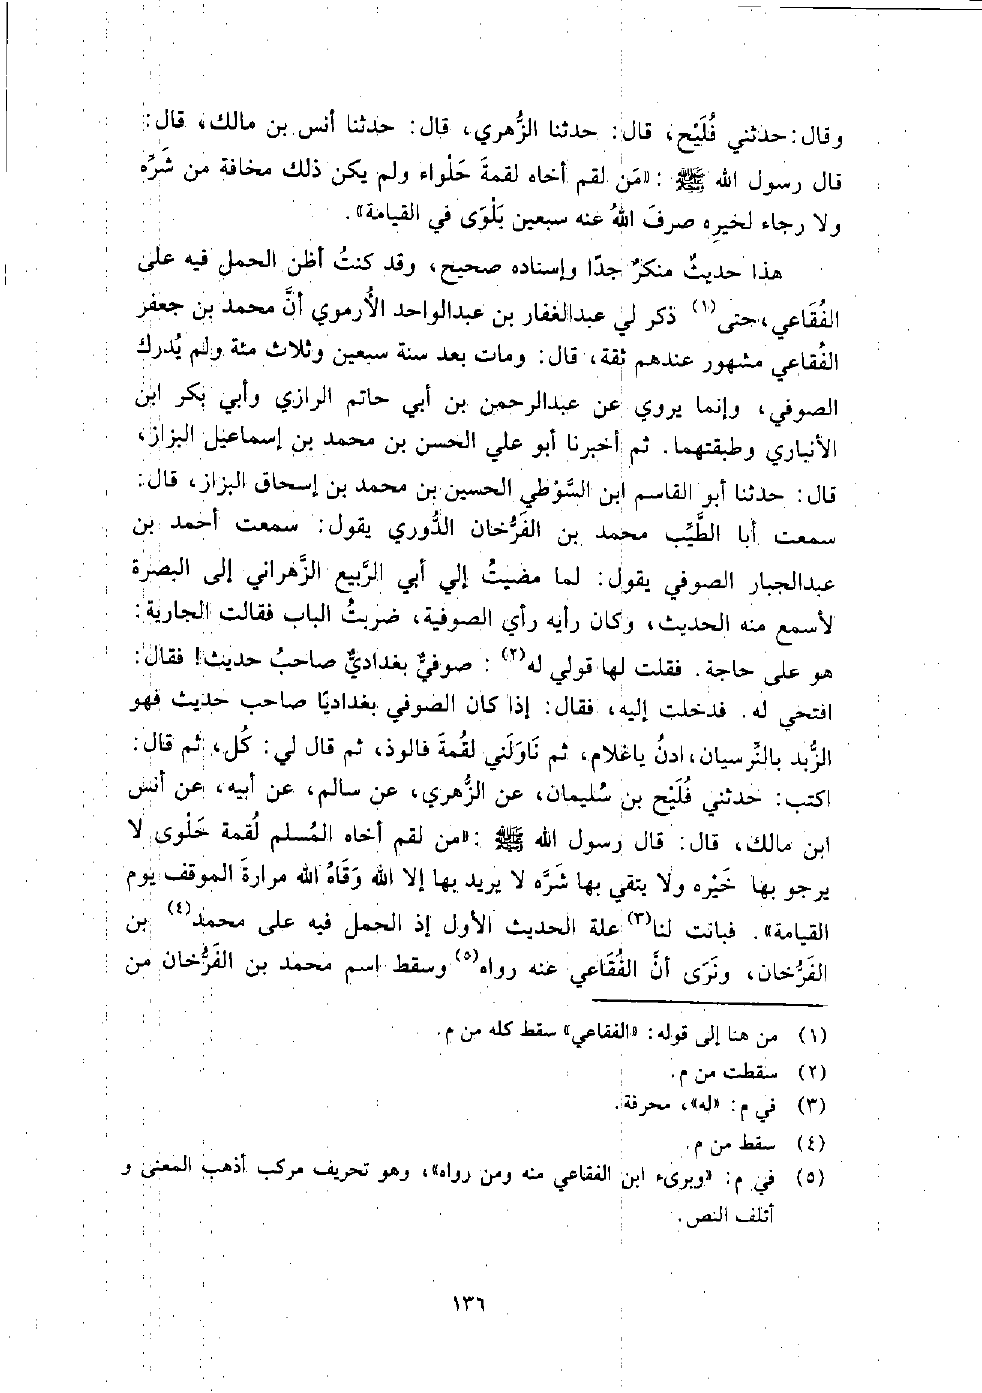 وقال: حدثني فُلَيْح، قال: حدثنا الزُّهري، قال: حدثنا أنس بن مالك، قال:
قال رسول الله ﷺ: «مَن لقم أخاه لقمةَ حَلْواء ولم يكن ذلك مخافة من شَرِّه
ولا رجاء لخيرِه صرفَ اللهُ عنه سبعين بَلْوَى في القيامة».
هذا حديثٌ منكرٌ جدًا وإسناده صحيح، وقد كنتُ أظن الحمل فيه على
الفُقَاعي، حتى(١) ذكر لي عبدالغفار بن عبدالواحد الأُرموي أنَّ محمد بن جعفر
الفُقاعي مشهور عندهم ثقة، قال: ومات بعد سنة سبعين وثلاث مئة ولم يُدرك
الصوفي، وإنما يروي عن عبدالرحمن بن أبي حاتم الرازي وأبي بكر ابن
الأنباري وطبقتهما. ثم أخبرنا أبو علي الحسن بن محمد بن إسماعيل البزاز،
قال: حدثنا أبو القاسم ابن السَّوْطي الحسين بن محمد بن إسحاق البزاز، قال:
سمعت أبا الطَّيِّب محمد بن الفَرُّخان الدُّوري يقول: سمعت أحمد بن
عبدالجبار الصوفي يقول: لما مضيتُ إلي أبي الرَّبيع الزَّهراني إلى البصرة
لأسمع منه الحديث، وكان رأيه رأي الصوفية، ضربتُ الباب فقالت الجارية:
هو على حاجة. فقلت لها قولي له(٢): صوفيٌّ بغداديٌّ صاحبُ حديث! فقال:
افتحي له. فدخلت إليه، فقال: إذا كان الصوفي بغداديًا صاحب حديث فهو
الزُّبد بالنِّرسيان، ادنُ ياغلام، ثم نَاوَلَني لقُمةَ فالوذ، ثم قال لي: كُل، ثم قال:
اكتب: حدثني فُلَيْح بن سُليمان، عن الزُّهري، عن سالم، عن أبيه، عن أنس
ابن مالك، قال: قال رسول الله ﷺ: «من لقم أخاه المُسلم لُقمة حَلْوى لا
يرجو بها خَيْره ولا يتقي بها شرَّه لا يريد بها إلا الله وَقَاهُ الله مرارةَ الموقف يوم
القيامة». فبانت لنا(٣) علة الحديث الأول إذ الحمل فيه على محمد(٤) بن
الفَرُّخان، ونَرَى أنَّ الفُقَاعي عنه رواه(٥) وسقط اسم محمد بن الفَرُّخان من
(١) من هنا إلى قوله: «الفقاعي» سقط كله من م.
(٢) سقطت من م.
(٣) في م: «له»، محرفة.
(٤) سقط من م.
(٥) في م: «وبرىء ابن الفقاعي منه ومن رواه»، وهو تحريف مركب أذهب المعنى و
أتلف النص.
١٣٦